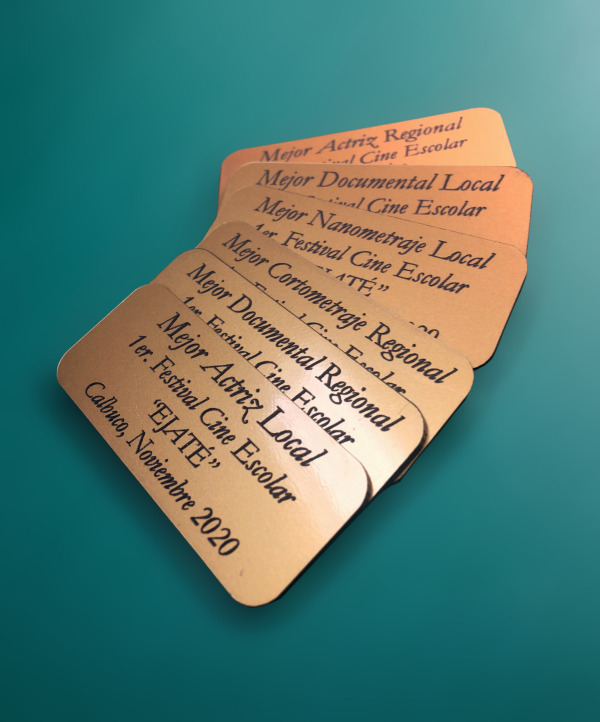 Mejor Actriz Regional
Cine Escolar
Mejor Documental Local
Festival Cine Escolar
Mejor Nanometraje Local
1er. Festival Cine Escolar
"EJATÉ"
2020
Mejor Cortometraje Regional
Festival Cine Escolar
Mejor Documental Regional
1er. Festival Cine Escolar
Mejor Actriz Local
1er. Festival Cine Escolar
"EJATÉ"
Calbuco, Noviembre 2020